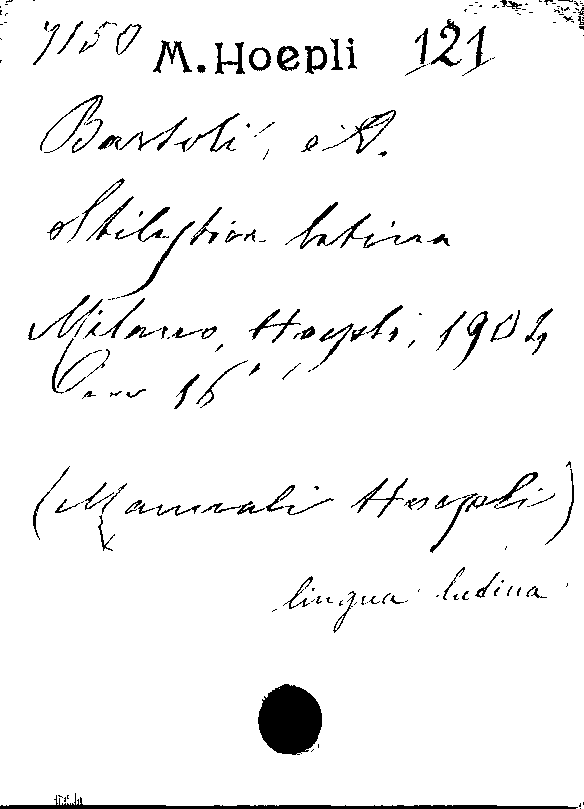 7150 M. Hoepli 121
Bartoli, A.
Stilistica latina
Milano, Hoepli, 1902
16°
(Manuali Hoepli)
lingua latina